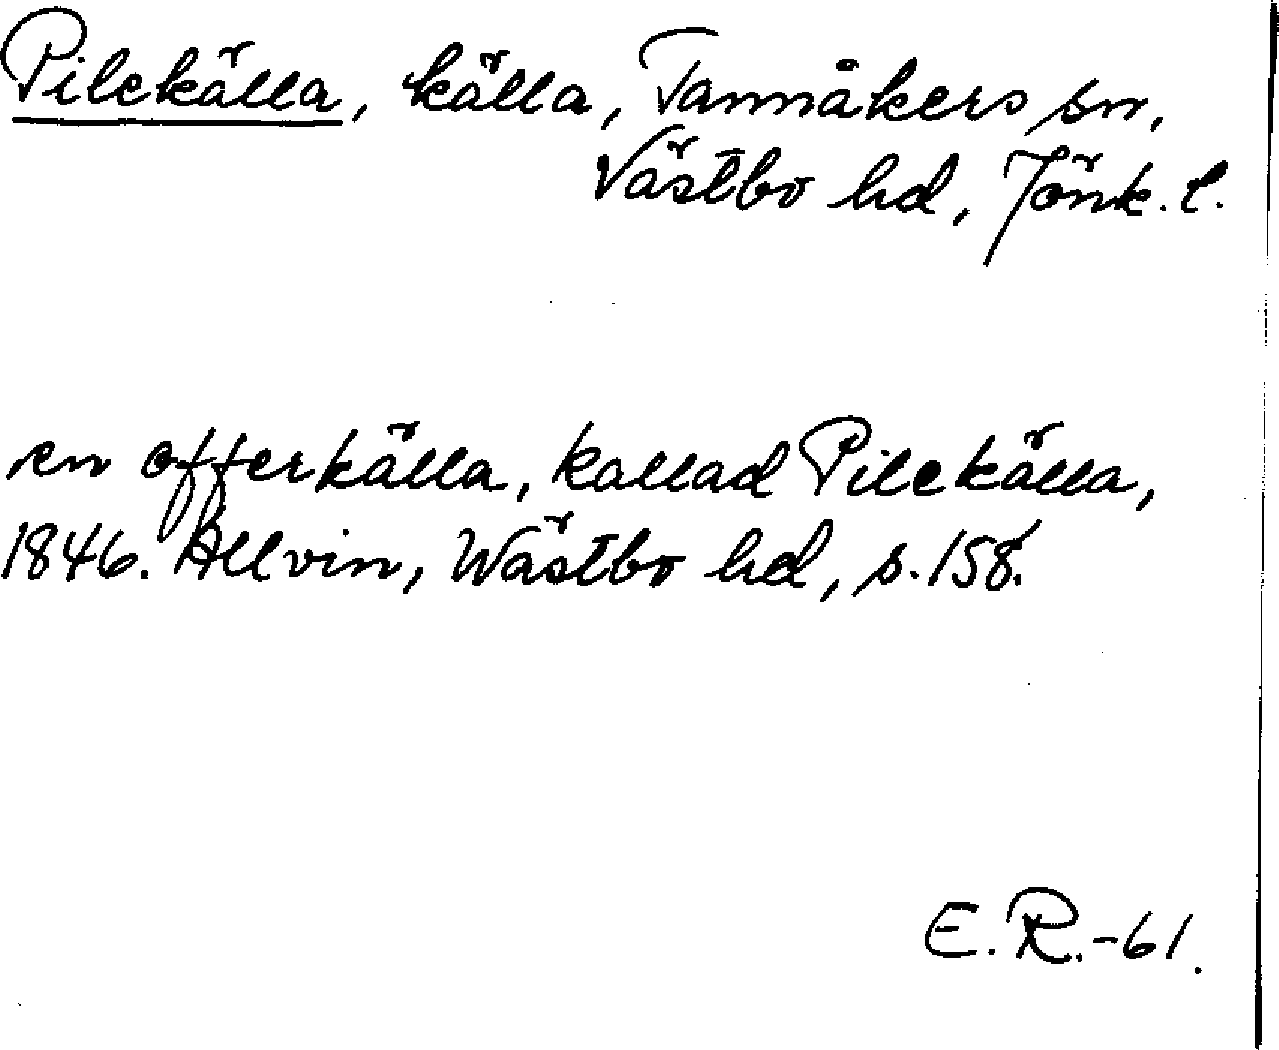 Pilekälla, källa, Tannåkers sn,
Västbo hd, Jönk. l.
en offerkälla, kallad Pilekälla,
1846. Allvin, Wästbo hd, s. 158.
E. R. -61.